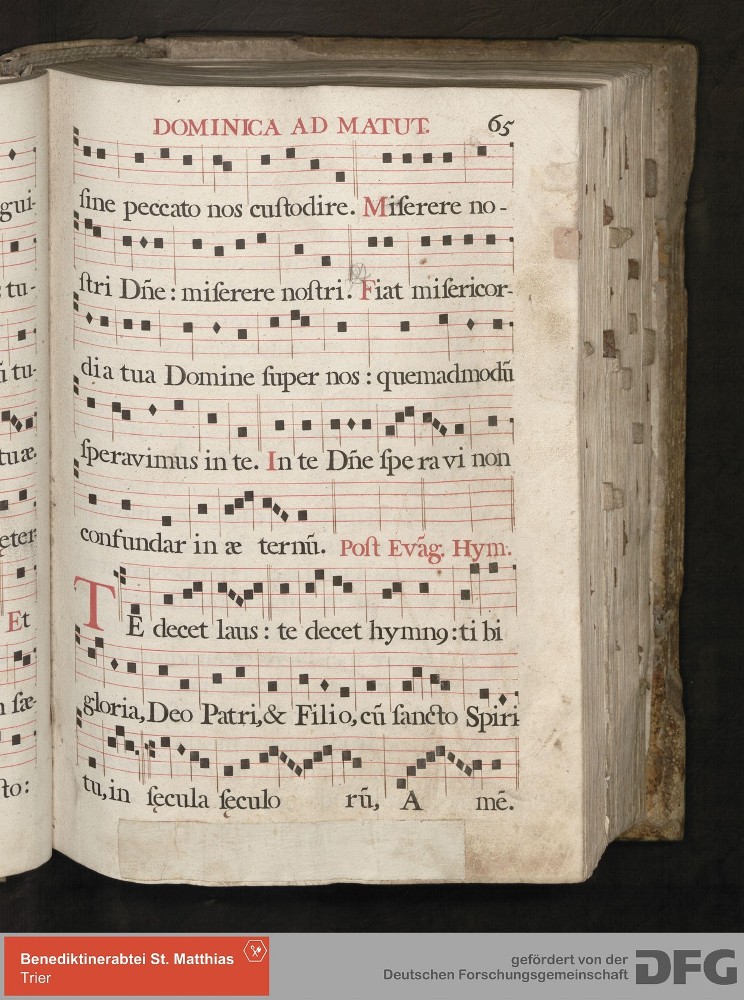 DOMINICA AD MATUT. 65
ſine peccato nos cuſtodire. Miſerere no-
ſtri Dñe: miſerere noſtri. Fiat miſericor-
dia tua Domine ſuper nos: quemadmodũ
ſperavimus in te. In te Dñe ſperavi non
confundar in æ ternũ. Poſt Evãg. Hym.
TE decet laus: te decet hymnꝯ: tibi
gloria, Deo Patri, & Filio, cũ ſancto Spiri
tu, in ſęcula ſęculo rũ, A mẽ.
gui-
tu-
tu-
tuæ.
Et
ſæ-
Benediktinerabtei St. Matthias
Trier
gefördert von der
Deutschen Forschungsgemeinschaft
DFG